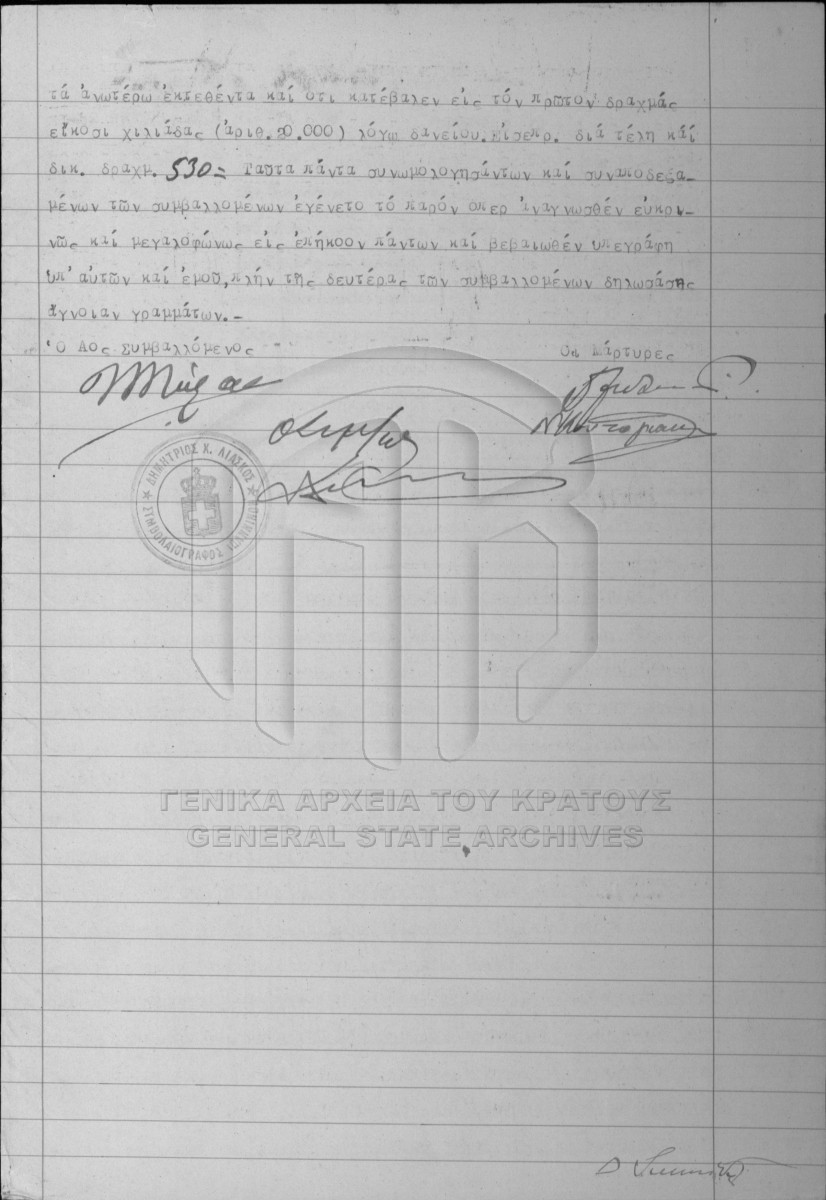 τά ἀνωτέρω ἐκτεθέντα καί ὅτι κατέβαλεν εἰς τόν πρῶτον δραχμάς
εἴκοσι χιλιάδας (ἀριθ.20.000) λόγῳ δανείου. Εἰσεπρ. διά τέλη καί
δικ. δραχμ. 530= Ταῦτα πάντα συνωμολογησάντων καί συναποδεξα-
μένων τῶν συμβαλλομένων ἐγένετο τό παρόν ὅπερ ἀναγνωσθέν εὐκρι-
νῶς καί μεγαλοφώνως εἰς ἐπήκοον πάντων καί βεβαιωθέν ὑπεγράφη
ὑπ' αὐτῶν καί ἐμοῦ, πλήν τῆς δευτέρας τῶν συμβαλλομένων δηλωσάσης
ἄγνοιαν γραμμάτων.-
Ὁ Αος Συμβαλλόμενος
Οἱ Μάρτυρες
ΔΗΜΗΤΡΙΟΣ Χ. ΛΙΑΣΚΟΣ
ΣΥΜΒΟΛΑΙΟΓΡΑΦΟΣ ΙΩΑΝΝΙΝΩΝ
ΓΕΝΙΚΑ ΑΡΧΕΙΑ ΤΟΥ ΚΡΑΤΟΥΣ
GENERAL STATE ARCHIVES